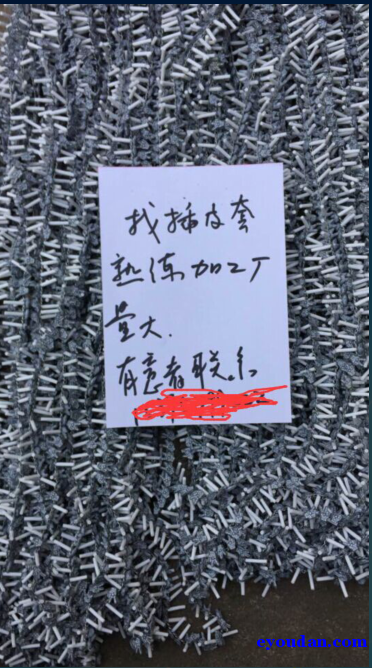 找插皮套
熟练加工厂
量大.
有意者联系
eyoudan.com